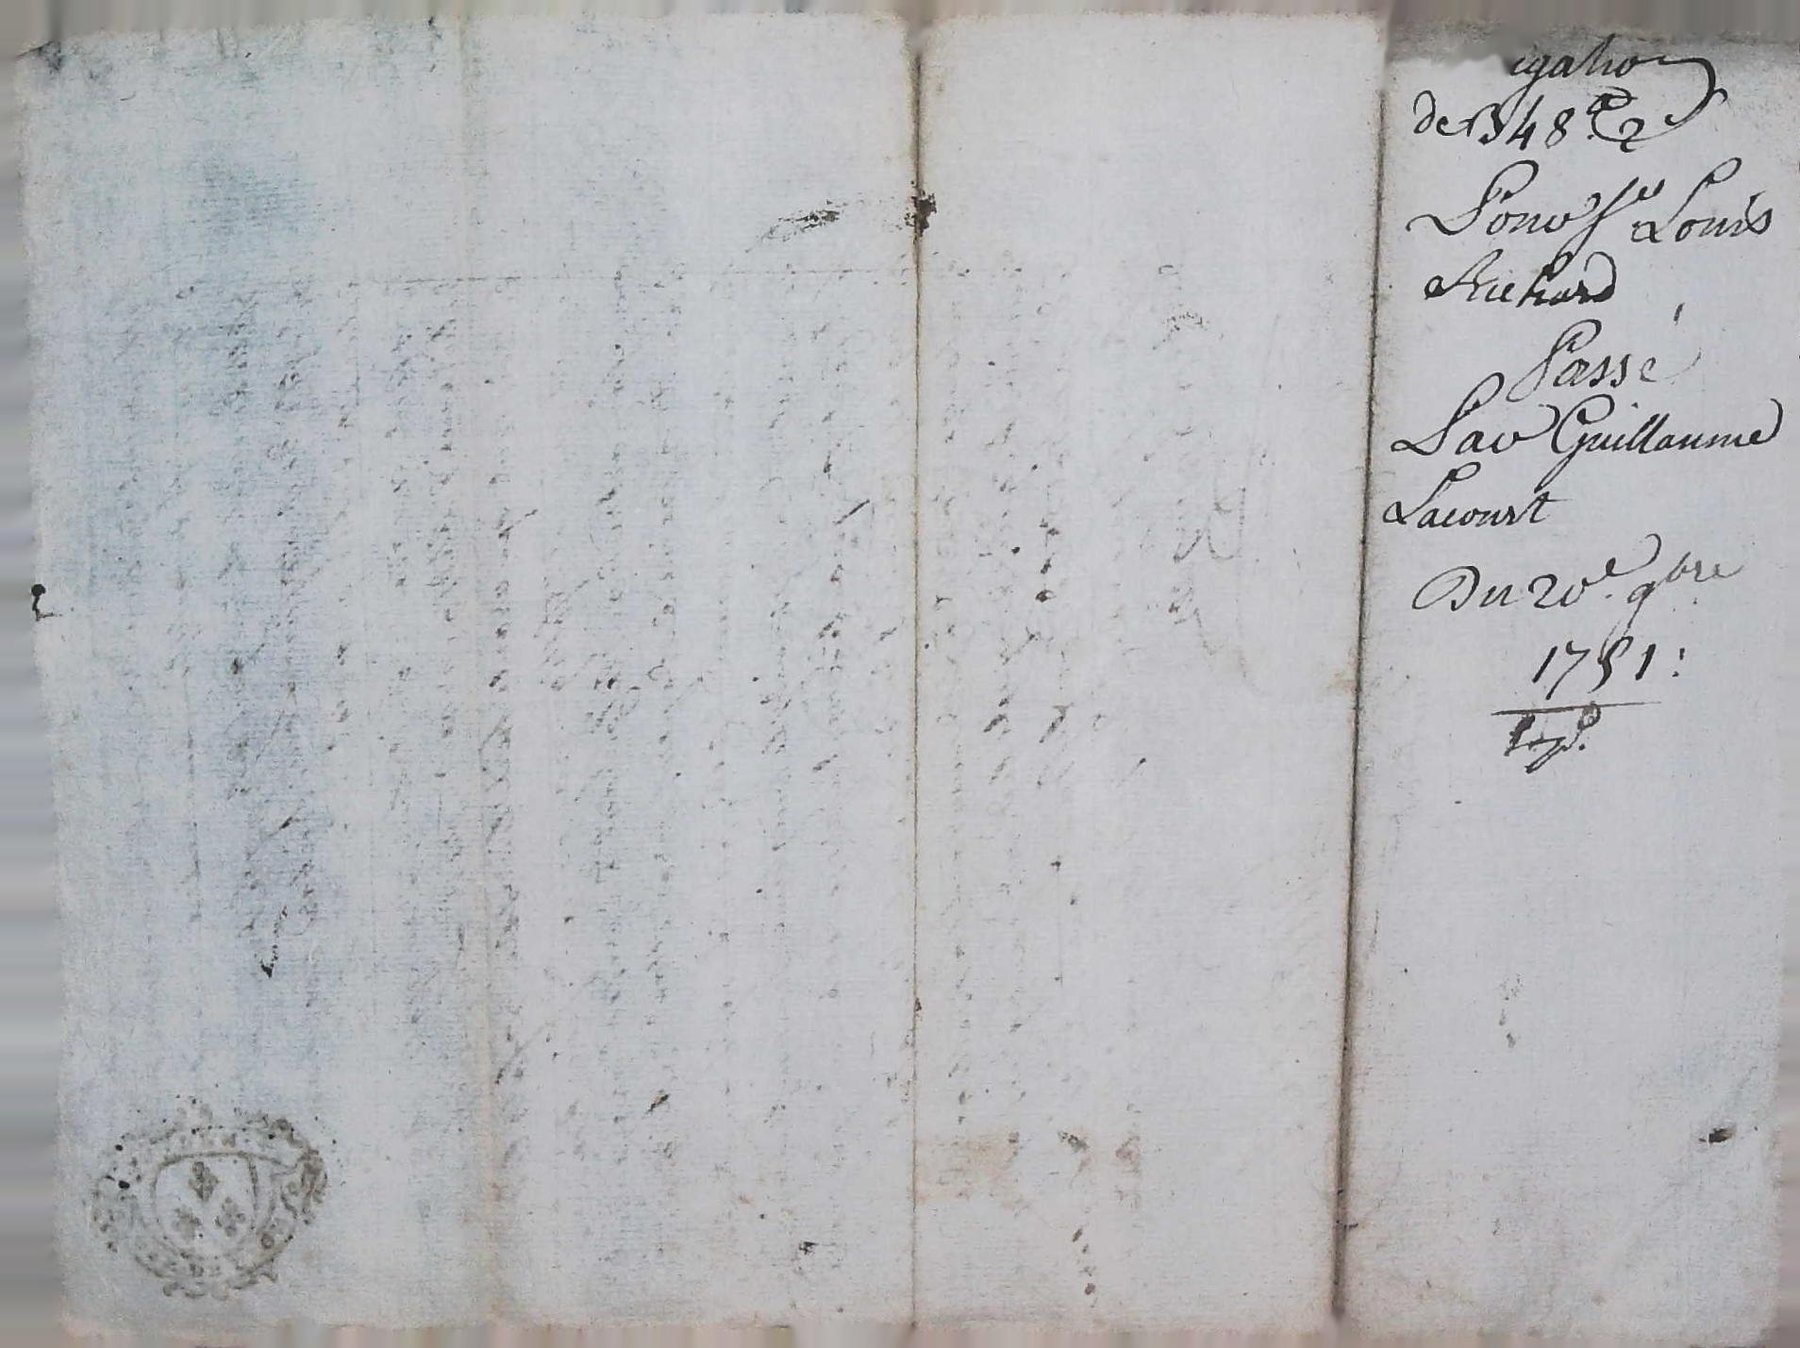 igation
de 348 ᵗᵗ 2
Pour Sr Louis
Richard
Passé
Par Guillaume
Lacourt
Du 20e. 9bre
1751: